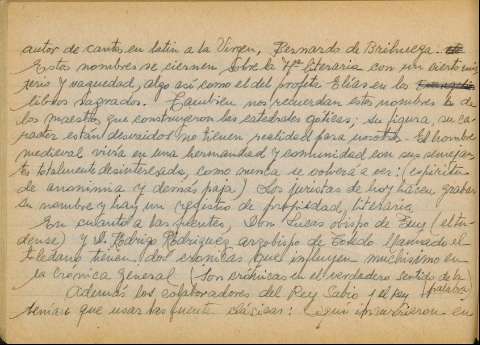 autor de cantos en latín a la Virgen, Bernardo de Brihuega.
Estos nombres se ciernen sobre la Hª literaria con un cierto mis
terio y vaguedad, algo así como el del profeta Elías en los
libros sagrados. También nos recuerdan estos nombres los de
los maestros que construyeron las catedrales góticas; su figura, su ca
rácter están desvaídos no tienen realidad para nosotros. El hombre
medieval vivía en una hermandad y comunidad con sus semejan
tes totalmente desinteresado, como nunca se volverá a ver: (espíritu
de anonimia y demás paja) Los juristas de hoy hacen grabar
su nombre y hay un registro de propiedad literaria
En cuanto a las fuentes, Don Lucas obispo de Tuy (el tu-
dense) y D. Rodrigo Rodríguez arzobispo de Toledo llamado el
toledano tienen dos crónicas que influyen muchísimo en
la Crónica General (Son crónicas en el verdadero sentido de la
palabra)
Además los colaboradores del Rey Sabio y el Rey
tenían que usar las fuente clásicas: Aquí incurrieron en